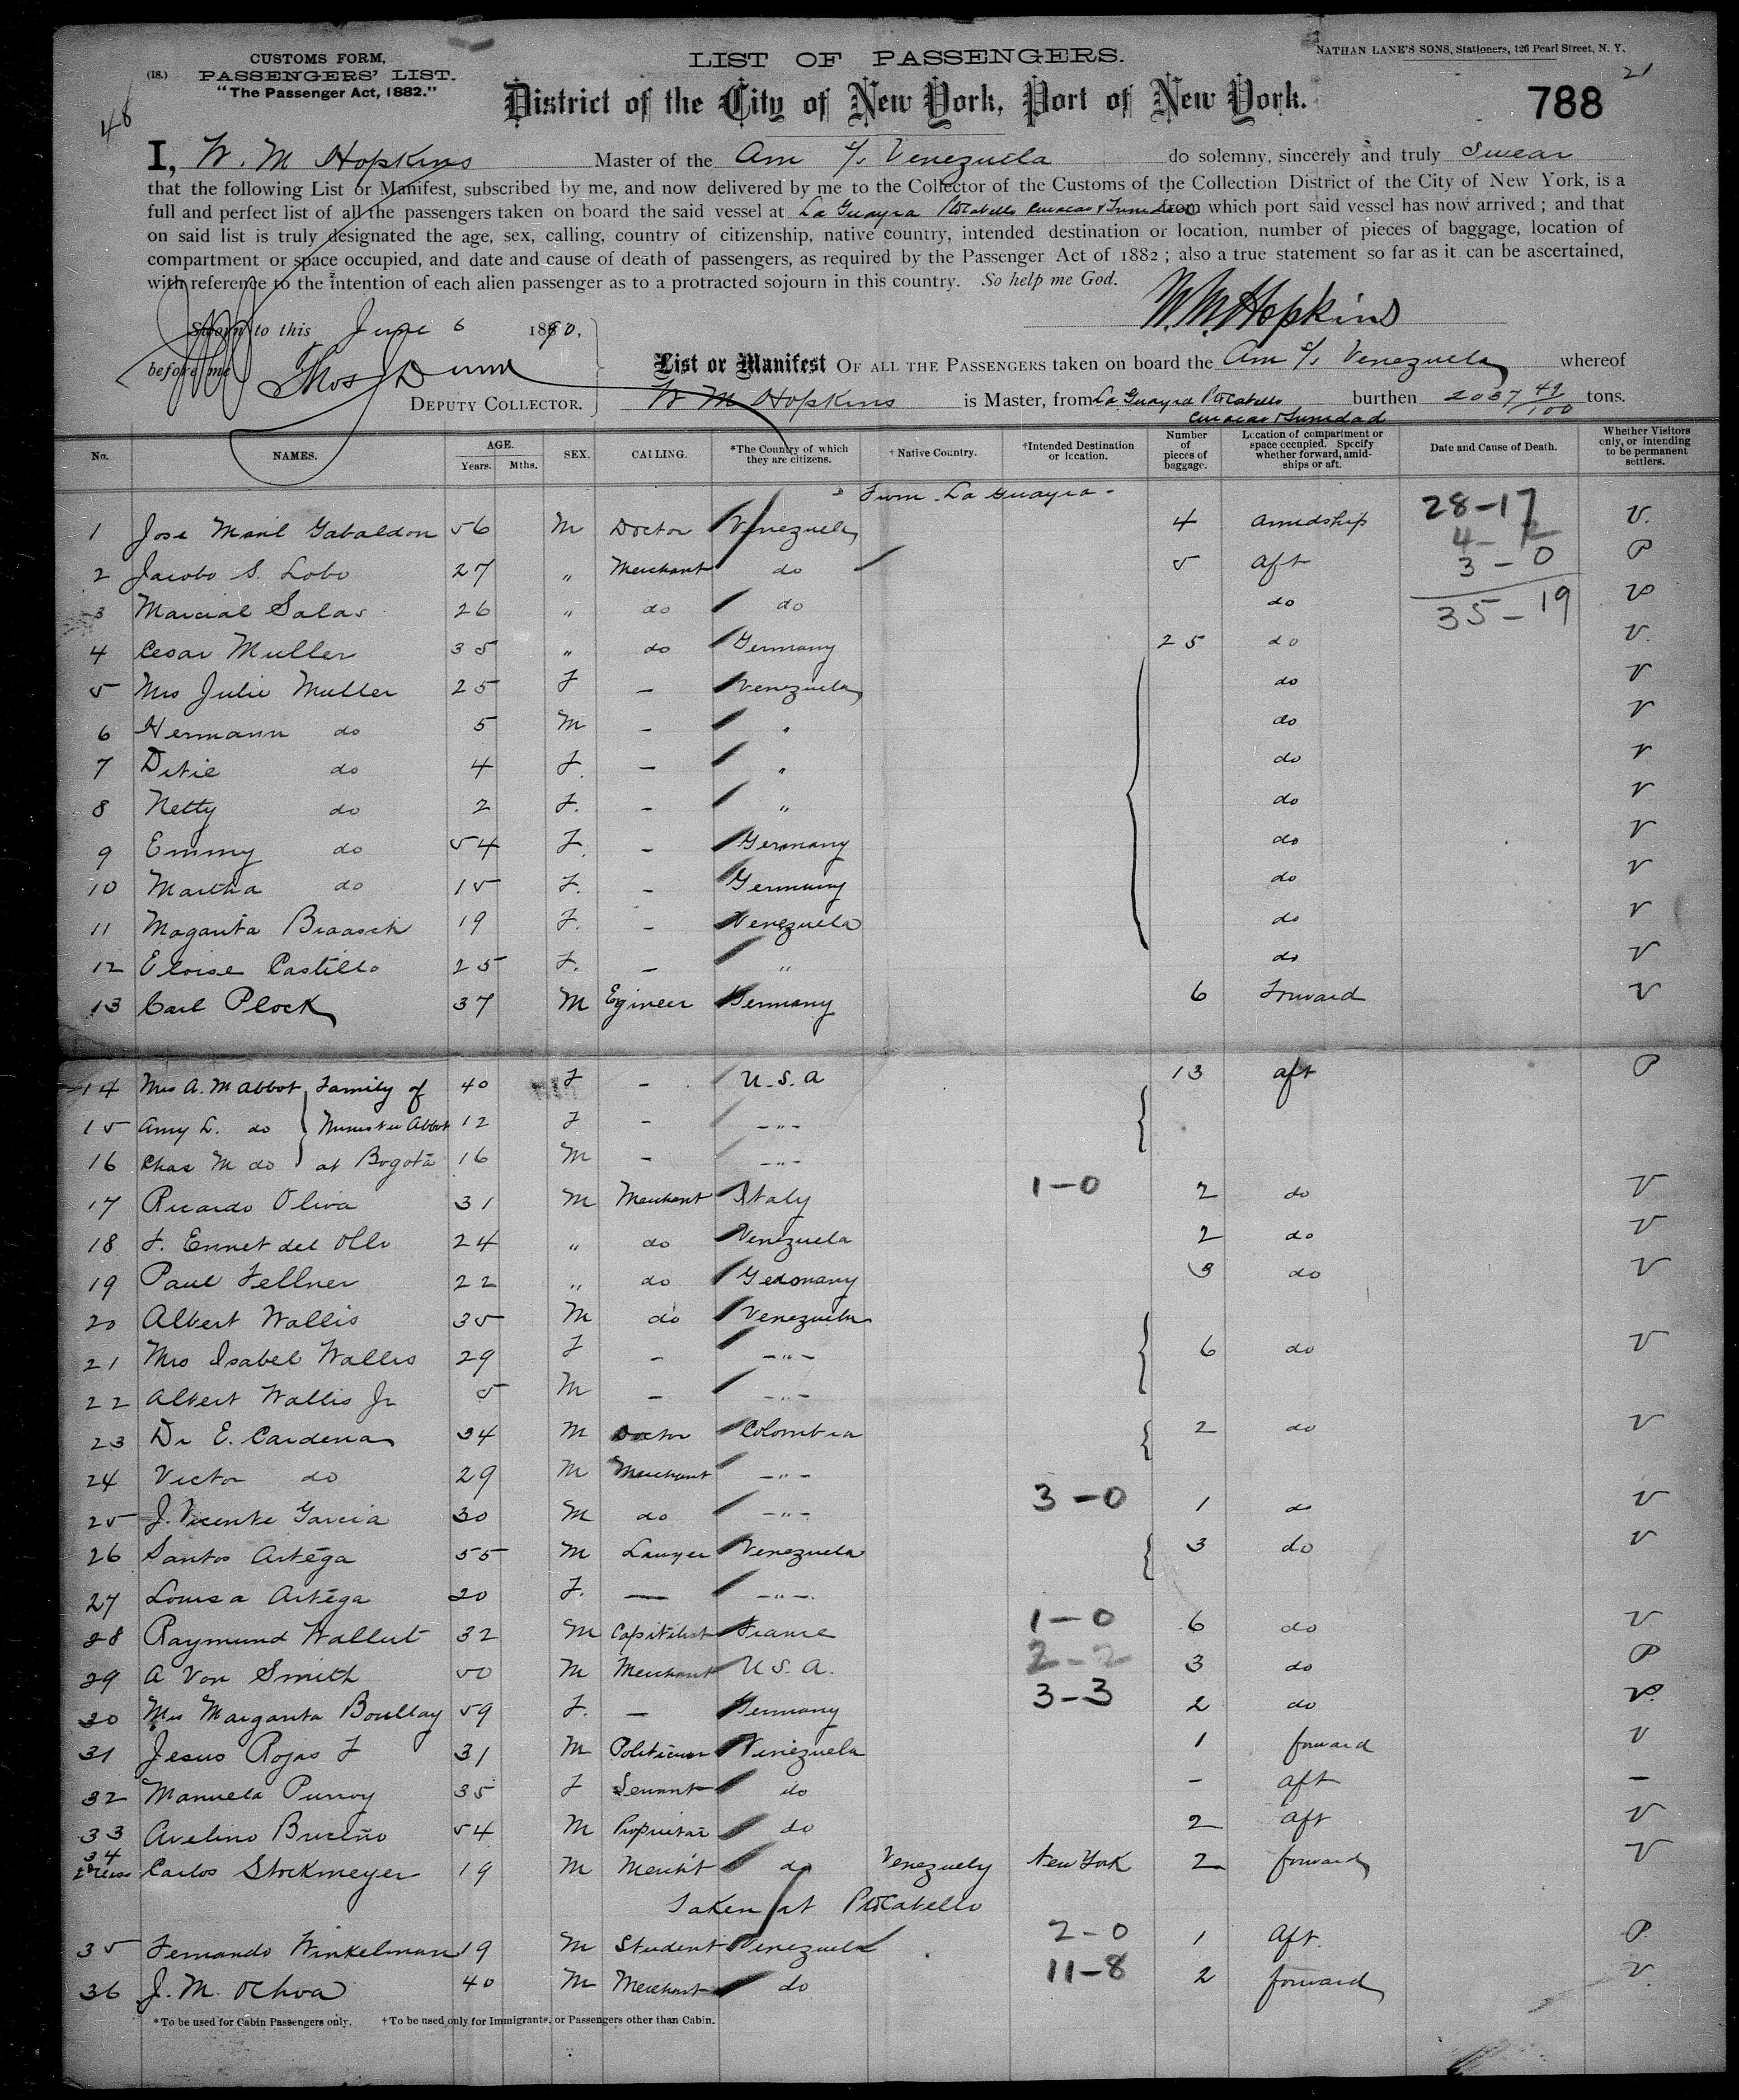 CUSTOMS FORM,
(18.) PASSENGERS' LIST.
"The Passenger Act, 1882."
LIST OF PASSENGERS.
NATHAN LANE'S SONS, Stationers, 126 Pearl Street, N. Y.
21
48
District of the City of New York, Port of New York.
788
I, W. M Hopkins Master of the Am S/s Venezuela do solemny, sincerely and truly Swear
that the following List or Manifest, subscribed by me, and now delivered by me to the Collector of the Customs of the Collection District of the City of New York, is a
full and perfect list of all the passengers taken on board the said vessel at La Guayra PtoCabello Curacao & Trinidad from which port said vessel has now arrived ; and that
on said list is truly designated the age, sex, calling, country of citizenship, native country, intended destination or location, number of pieces of baggage, location of
compartment or space occupied, and date and cause of death of passengers, as required by the Passenger Act of 1882 ; also a true statement so far as it can be ascertained,
with reference to the intention of each alien passenger as to a protracted sojourn in this country. So help me God.
W. M. Hopkins
Sworn to this June 6 1890,
before me Thos Dunn
DEPUTY COLLECTOR.
List or Manifest OF ALL THE PASSENGERS taken on board the Am S/s Venezuela whereof
W M Hopkins is Master, from La Guayra PtoCabello Curacao & Trinidad burthen 2037 42/100 tons.
No. NAMES. AGE. Years. Mths. SEX. CALLING. *The Country of which they are citizens. † Native Country. †Intended Destination or location. Number of pieces of baggage. Location of compartment or space occupied. Specify whether forward, amidships or aft. Date and Cause of Death. Whether Visitors only, or intending to be permanent settlers.
From La Guayra -
1 Jose Manl Gabaldon 56 M Doctor Venezuela 4 amidship 28-17 V.
2 Jacobo S. Lobo 27 " Merchant do 5 aft 4-2 3-0 P
3 Marcial Salas 26 " do do do 35-19
4 Cesar Muller 35 " do Germany 25 do V.
5 Mrs Julie Muller 25 F - Venezuela do V
6 Hermann do 5 M - " do V
7 Ditie do 4 F. - " do V
8 Netty do 2 F. - " do V
9 Emmy do 54 F. - Germany do V
10 Martha do 15 F. - Germany do V
11 Magarita Braasch 19 F. - Venezuela do V
12 Eloise Castillo 25 F. - " do V
13 Carl Plock 37 M Egineer Germany 6 Forward V
14 Mrs A. M Abbot Family of 40 F - U.S.A 13 aft P
15 Amy L. do Minister Abbot 12 F - -"-
16 Chas M do at Bogotá 16 M - -"-
17 Ricardo Oliva 31 M Merchant Italy 1-0 2 do V
18 F. Ennet del Ollo 24 " do Venezuela 2 do V
19 Paul Fellner 22 " do Germany 3 do V
20 Albert Wallis 35 M do Venezuela
21 Mrs Isabel Wallis 29 F - -"- 6 do V
22 Albert Wallis Jr 5 M - -"-
23 Dr E. Cardenas 34 M Doctor Colombia 2 do V
24 Victor do 29 M Merchant -"-
25 J. Vicente Garcia 30 M do -"- 3-0 1 do V
26 Santos Artéga 55 M Lawyer Venezuela 3 do V
27 Louisa Artéga 20 F. - -"-
28 Raymund Wallut 32 M Capitalist France 1-0 6 do V
29 A Von Smith 50 M Merchant U S. A. 2-2 3 do P
30 Mrs Margarita Boullay 59 F. - Germany 3-3 2 do
31 Jesus Rojas F 31 M Politician Venezuela 1 forward V
32 Manuela Purroy 35 F Servant do - aft -
33 Avelino Briceño 54 M Proprietar do 2 aft V
34 Carlos Stockmeyer 19 M Merch't do Venezuely New York 2 forward V
Taken at PtoCabello
35 Fernando Winkelman 19 M Student Venezuela 2-0 1 Aft. P.
36 J. M. Ochoa 40 M Merchant do 11-8 2 forward V.
*To be used for Cabin Passengers only. †To be used only for Immigrants, or Passengers other than Cabin.